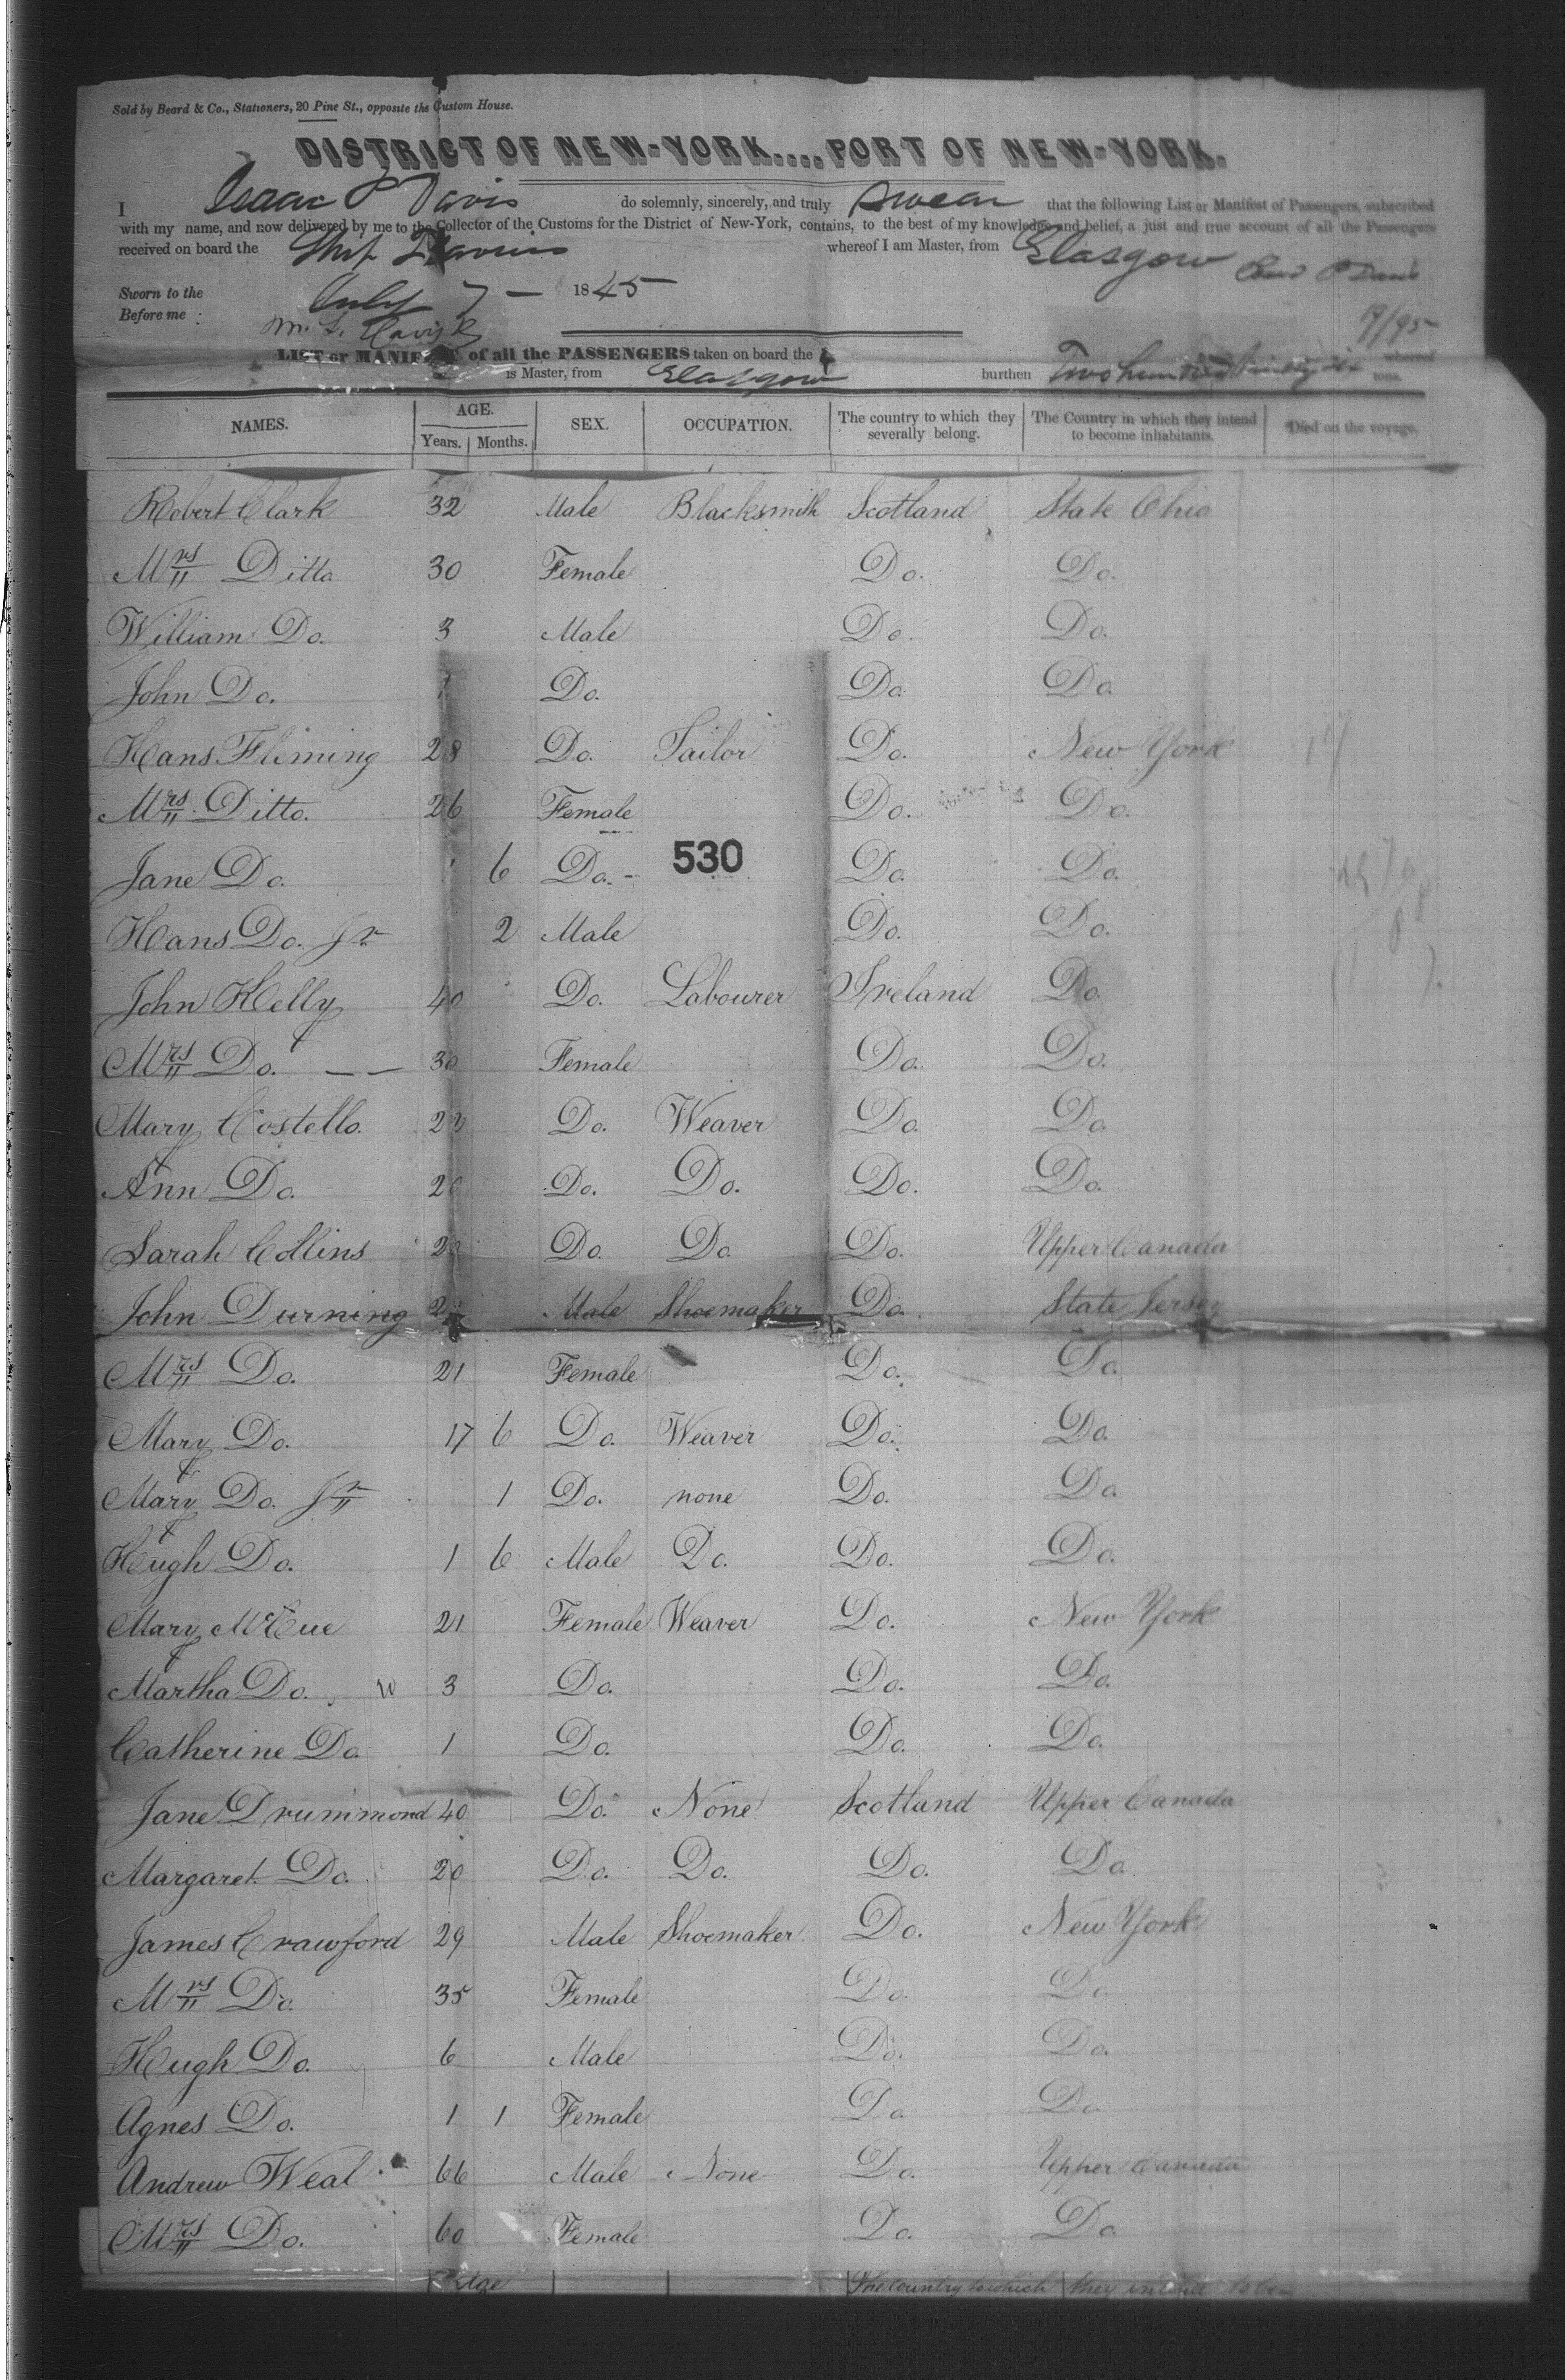 Sold by Beard & Co., Stationers, 20 Pine St., opposite the Custom House.
DISTRICT OF NEW-YORK....PORT OF NEW-YORK.
I Isaac P Davis do solemnly, sincerely, and truly Swear that the following List or Manifest of Passengers, subscribed
with my name, and now delivered by me to the Collector of the Customs for the District of New-York, contains, to the best of my knowledge and belief, a just and true account of all the Passengers
received on board the Ship whereof I am Master, from Glasgow
Sworn to the July 7 - 1845
Before me
LIST or MANIFEST of all the PASSENGERS taken on board the whereof
is Master, from Glasgow burthen Two hundred Ninety six tons.
NAMES. AGE. Years. Months. SEX. OCCUPATION. The country to which they severally belong. The Country in which they intend to become inhabitants. Died on the voyage.
Robert Clark 32 Male Blacksmith Scotland State Ohio
Mrs Ditto 30 Female Do. Do.
William Do. 3 Male Do. Do.
John Do. Do. Do. Do.
Hans Fleming 28 Do. Tailor Do. New York
Mrs Ditto. 26 Female Do. Do.
Jane Do. 6 Do. Do. Do.
530
Hans Do. Jr 2 Male Do. Do.
John Kelly 40 Do. Labourer Ireland Do.
Mrs Do. 30 Female Do. Do.
Mary Costello. Do. Weaver Do. Do.
Ann Do. Do. Do. Do. Do.
Sarah Collins Do. Do. Do. Upper Canada
John Durning Male Shoemaker Do. State Jersey
Mrs Do. 21 Female Do. Do.
Mary Do. 17 6 Do. Weaver Do. Do.
Mary Do. Jr 1 Do. none Do. Do.
Hugh Do. 1 6 Male Do. Do. Do.
Mary McCue 21 Female Weaver Do. New York
Martha Do. 3 Do. Do. Do.
Catherine Do. 1 Do. Do. Do.
Jane Drummond 40 Do. None Scotland Upper Canada
Margaret Do. 20 Do. Do. Do. Do.
James Crawford 29 Male Shoemaker Do. New York
Mrs Do. 35 Female Do. Do.
Hugh Do. 6 Male Do. Do.
Agnes Do. 1 1 Female Do. Do.
Andrew Weal 66 Male None Do. Upper Canada
Mrs Do. 60 Female Do. Do.
Age The country to which they intend to be